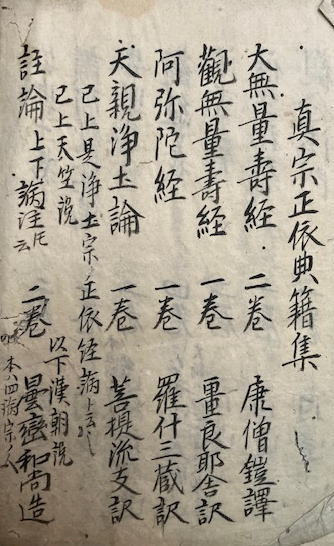 真宗正依典籍集
大無量壽経 二巻 康僧鎧譯
觀無量壽経 一巻 畺良耶舎訳
阿弥陀経 一巻 羅什三蔵訳
天親浄土論 一巻 菩提流支訳
已上是浄土宗ノ正依経論
已上天竺説 以下漢朝説
註論 上下 二巻 曇鸞和尚造